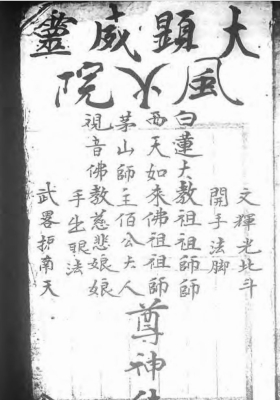 大顯威靈
風火院
文輝光北斗
開手法脚
白蓮大教祖祖師師
西天如来佛祖祖師
茅山師主佰公大人
視音佛教慈悲娘娘
手生眼法
武畧南天
尊神